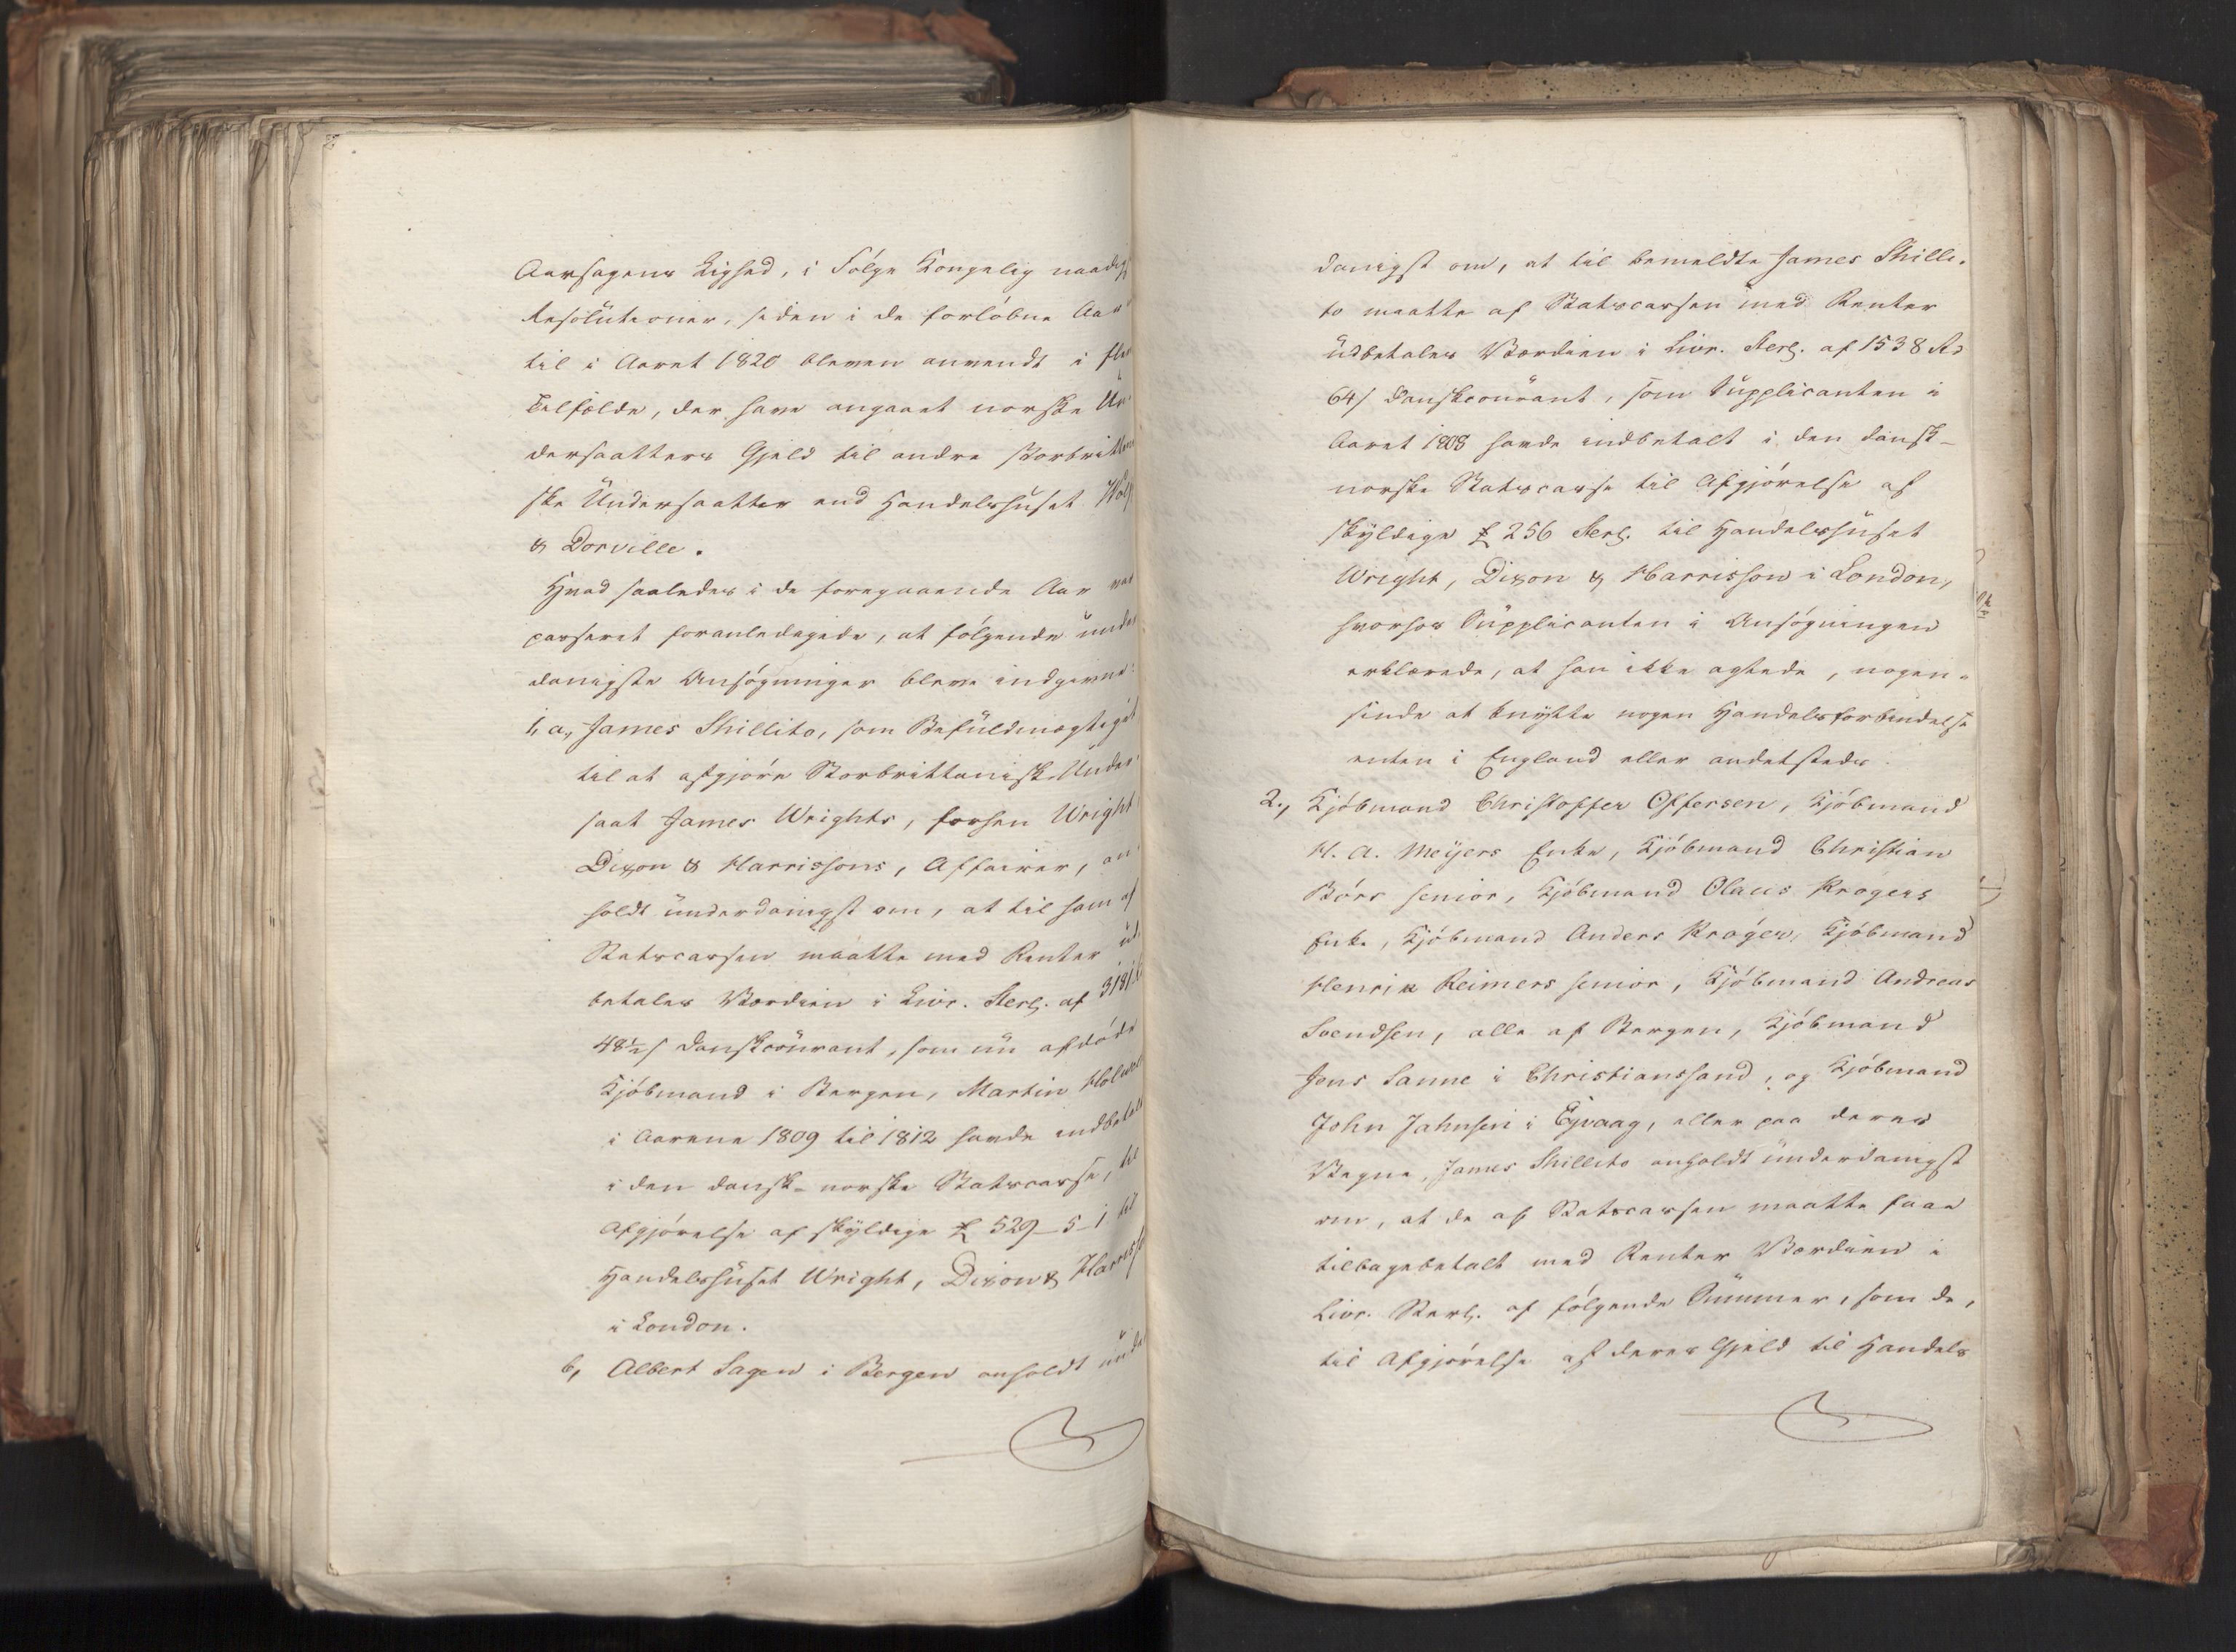 Aarsagens Lighed, i Følge Kongelig naadigst
Resolutioner, siden i de forløbne Aar
til i Aaret 1820 bleven anvendt i flere
Tilfælde, der have angaaet norske Un-
dersaatters Gjeld til andre storbrittani
ske Undersaatter end Handelshuset Wolff
& Dorville.
Hvad saaledes i de foregaaende Aar var
passeret foranledigede, at følgende under
danigste Ansøgninger bleve indgivne:
1, a, James Shillito, som Befuldmægtiget
til at afgjøre Storbrittanisk Under-
saat James Wrights, forhen Wright
Dixon & Harrissons, Affairer, an-
holdt underdanigst om, at til ham af
Statscassen maatte med Renter ud-
betales Værdien i Livr. Sterl. af 3181
48½ s danskcourant, som nu afdøde
Kjøbmand i Bergen, Martin
i Aarene 1809 til 1812 havde indbetalt
i den dansk-norske Statscasse, til
Afgjørelse af skyldige £ 529-5-1 til
Handelshuset Wright, Dixon & Harrisson
i London.
b, Albert Sagen i Bergen anholdt under
danigst om, at til bemeldte James Shilli-
to maatte af Statscassen med Renter
udbetales Værdien i Livr. Sterl. af 1538 Rd
64 s danskcourant, som Supplicanten i
Aaret 1808 havde indbetalt i den dansk-
norske Statscasse til Afgjørelse af
skyldige £ 256 Sterl. til Handelshuset
Wright, Dixon & Harrisson i London,
hvorhos Supplicanten i Ansøgningen
erklærede, at han ikke agtede, nogen-
sinde at knytte nogen Handelsforbindelse
enten i England eller andetsteds.
2., Kjøbmand Christoffer Offersen, Kjøbmand
H. A. Meyers Enke, Kjøbmand Christian
Børs senior, Kjøbmand Olaus Krøgers
Enke, Kjøbmand Anders Krøger, Kjøbmand
Henrik Reimers senior, Kjøbmand Andreas
Svendsen, alle af Bergen, Kjøbmand
Jens Sanne i Christianssand, og Kjøbmand
John Jahnsen i Eyvaag, eller paa deres
Vegne, James Shillito anholdt underdanigst
om, at de af Statscassen maatte faae
tilbagebetalt med Renter Værdien i
Livr. Sterl. af følgende Summer, som de,
til Afgjørelse af deres Gjeld til Handels